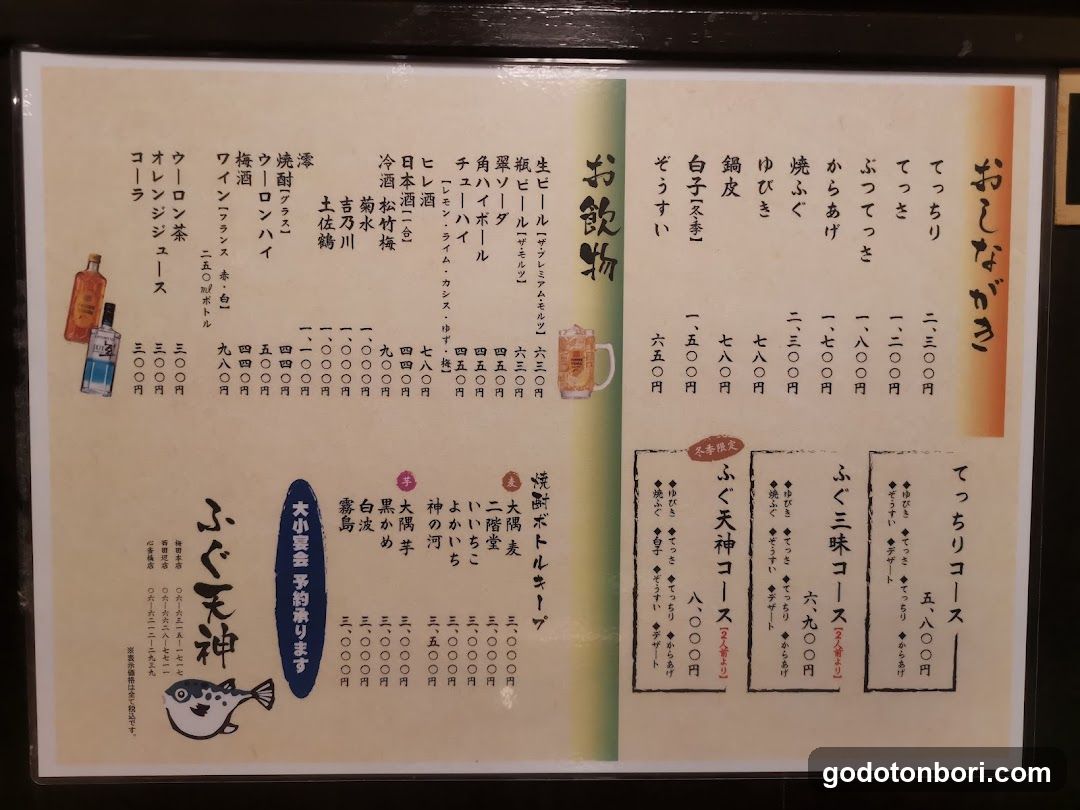 おしながき
てっちり 二、三〇〇円
てっさ 一、二〇〇円
ぶつてっさ 一、八〇〇円
からあげ 一、七〇〇円
焼ふぐ 二、三〇〇円
ゆびき 七八〇円
鍋皮 七八〇円
白子【冬季】 一、五〇〇円
ぞうすい 六五〇円
てっちりコース 五、八〇〇円
◆ゆびき ◆てっさ ◆てっちり ◆からあげ
◆ぞうすい ◆デザート
ふぐ三昧コース【2人前より】 六、九〇〇円
◆ゆびき ◆てっさ ◆てっちり ◆からあげ
◆焼ふぐ ◆ぞうすい ◆デザート
冬季限定
ふぐ天神コース【2人前より】 八、〇〇〇円
◆ゆびき ◆てっさ ◆てっちり ◆からあげ
◆焼ふぐ ◆白子 ◆ぞうすい ◆デザート
お飲物
生ビール【ザ・プレミアム・モルツ】 六三〇円
瓶ビール【ザ・モルツ】 六三〇円
翠ソーダ 四五〇円
角ハイボール 四五〇円
チューハイ 四五〇円
【レモン・ライム・カシス・ゆず・梅】
ヒレ酒 七八〇円
日本酒【一合】 四四〇円
冷酒 松竹梅 九〇〇円
菊水 一、〇〇〇円
吉乃川 一、〇〇〇円
土佐鶴 一、〇〇〇円
澪 一、一〇〇円
焼酎【グラス】 四四〇円
ウーロンハイ 五〇〇円
梅酒 四四〇円
ワイン【フランス 赤・白】 九八〇円
二五〇㎖ボトル
ウーロン茶 三〇〇円
オレンジジュース 三〇〇円
コーラ 三〇〇円
焼酎ボトルキープ
麦
大隅 麦 三、〇〇〇円
二階堂 三、〇〇〇円
いいちこ 三、〇〇〇円
よかいち 三、〇〇〇円
神の河 三、五〇〇円
芋
大隅 芋 三、〇〇〇円
黒かめ 三、〇〇〇円
白波 三、〇〇〇円
霧島 三、〇〇〇円
大小宴会 予約承ります
ふぐ天神
梅田本店 〇六-六三一五-一七一七
西田辺店 〇六-六六二八-七七一一
心斎橋店 〇六-六二一二-二九三九
※表示価格は全て税込です。
godotonbori.com